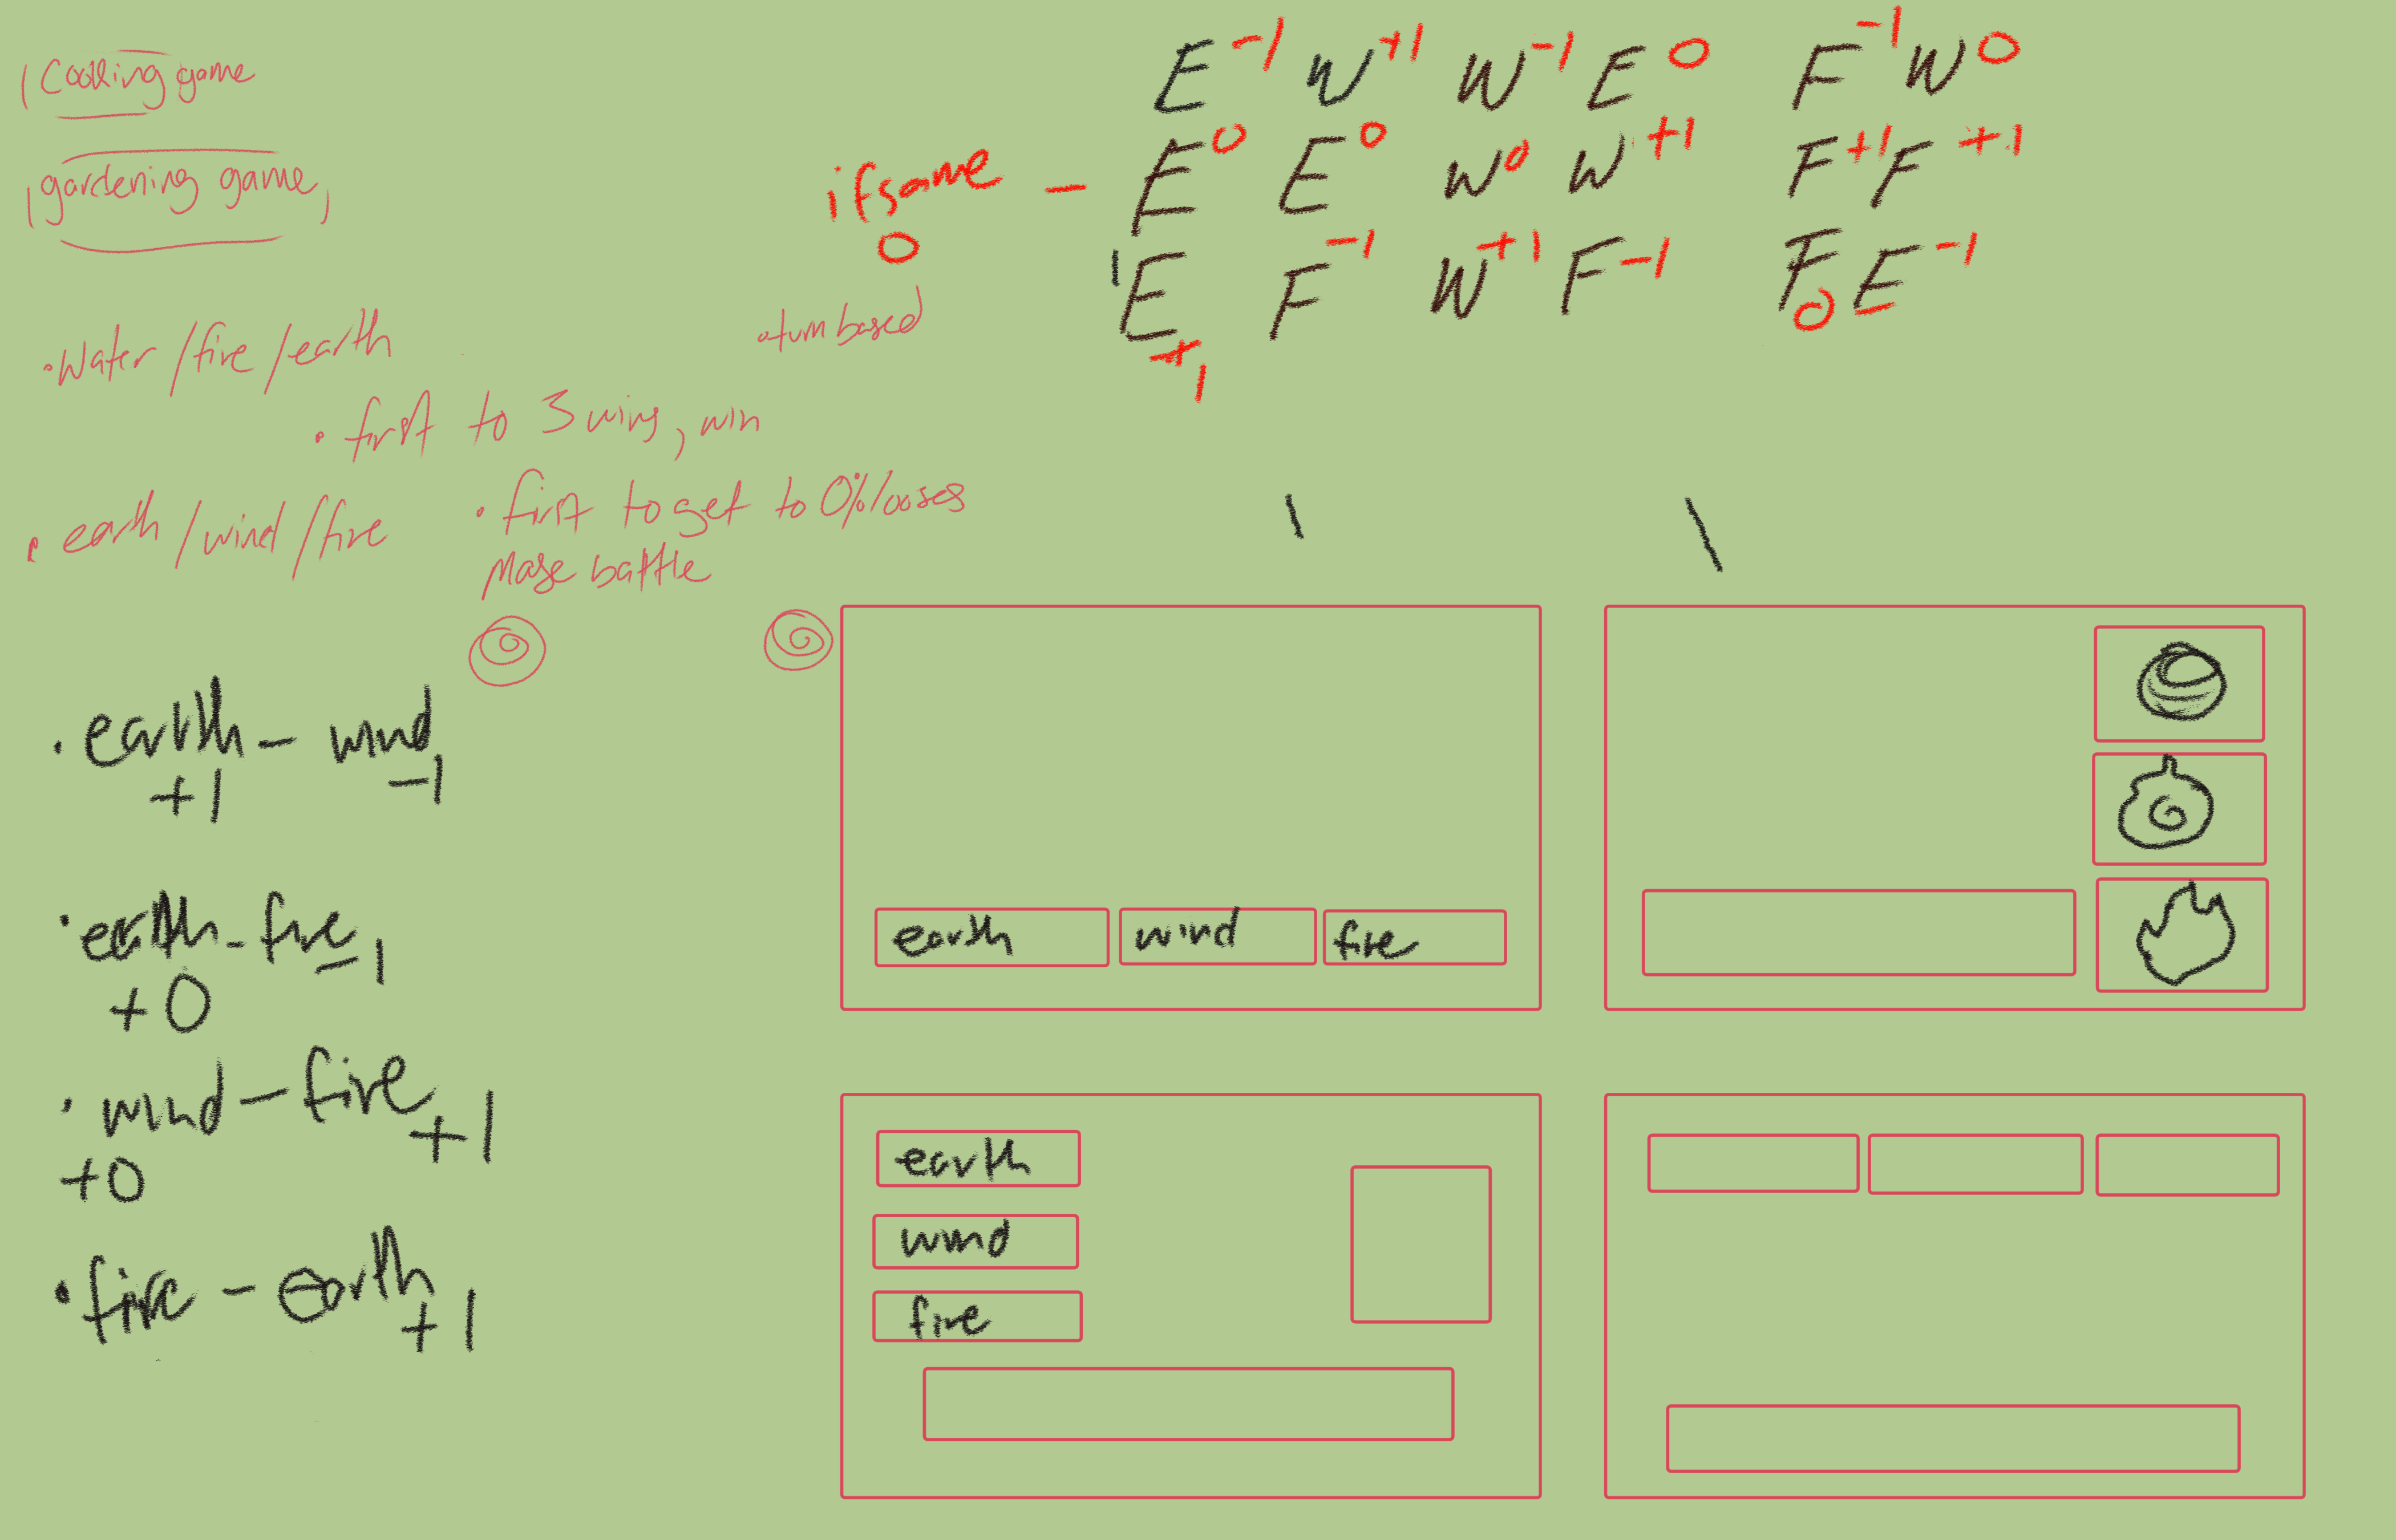 Cooking game
gardening game,
• Water / fire / earth
• turn based
• first to 3 wins, win
• earth / wind / fire
• first to get to 0% looses
Mage battle
E -1 W +1 W -1 E 0 F -1 W 0
if same — E 0 E 0 W 0 W +1 F +1 F +1
0
E +1 F -1 W +1 F -1 F 0 E -1
• earth - wind
+1 -1
• earth - fire -1
+0
• wind - fire +1
+0
• fire - earth +1
earth wind fire
earth
wind
fire